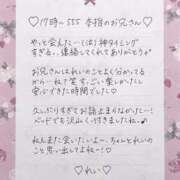 ♡17時〜555 本指のお兄さん♡
やっと会えたー(泣)神タイミング
すぎる、連絡してくれてありがとう♪
お兄さんはれいのことよく分かってる
からね！笑 すごい楽しかったし
安心できた時間でした♡
久しぶりすぎてお話止まらなかったー！
ベッドでも沢山くっつきましたね♪
れんまた会いたいよー、ちゃんとれいの
こと思い出してよねー！♡
♡れい♡